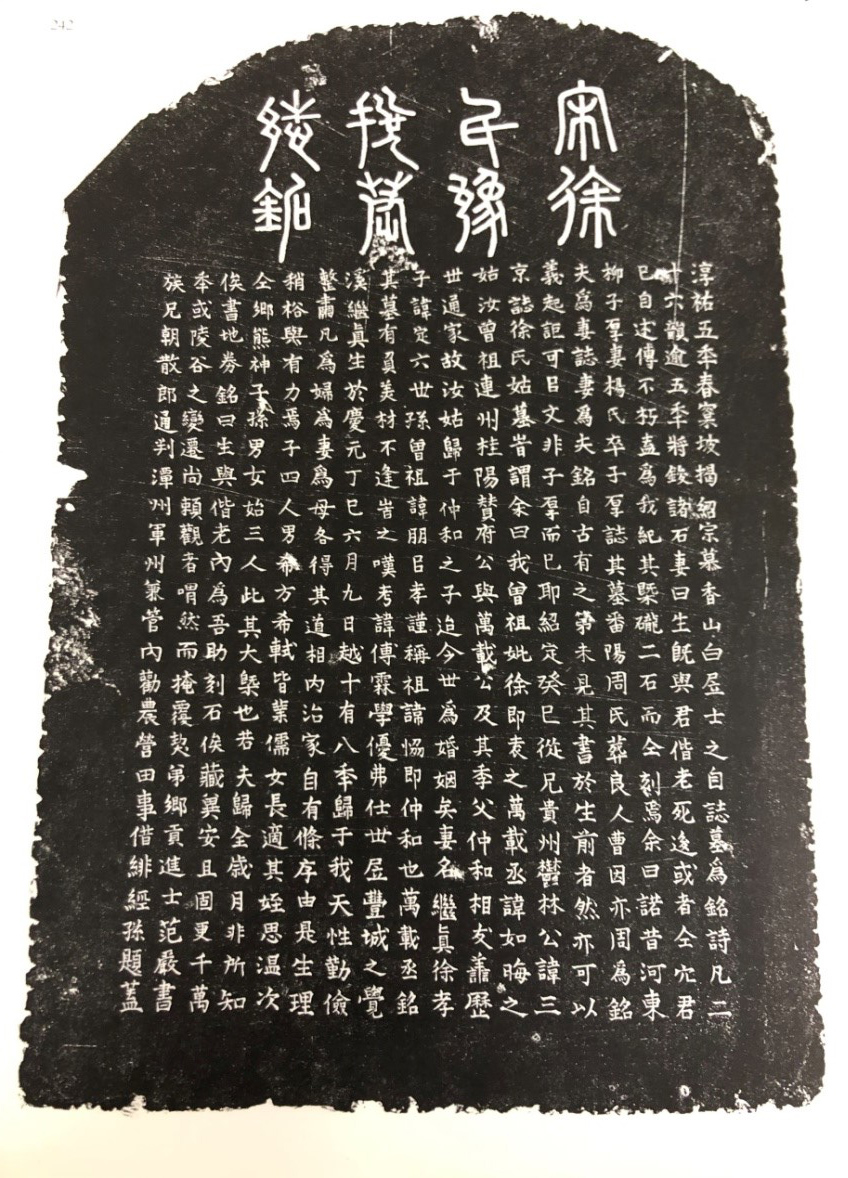 242
宋徐
氏豫
後銘
淳祐五秊春窠坡揭紹宗墓香山白居士之自誌墓爲銘詩凡二
十六韻逾五秊將鋟諸石妻曰生旣與君偕老死逺或者仝穴君
已自述傳不朽盍爲我紀其槩礲二石而仝刻焉余曰諾昔河東
柳子厚妻楊氏卒子厚誌其墓番陽周氏葬良人曹因亦周爲銘
夫爲妻誌妻爲夫銘自古有之第未見其書於生前者然亦可以
義起詎可曰文非子厚而已耶紹定癸巳從兄貴州欝林公諱三
京誌徐氏姑墓昔謂余曰我曾祖妣徐即袁之萬載丞諱如晦之
姑汝曾祖連州桂陽贊府公與萬載公及其季父仲和相友善歷
世通家故汝姑歸于仲和之子迨今世爲婚姻矣妻名繼眞徐孝
子諱定六世孫曾祖諱朋臣孝謹稱祖諱恊即仲和也萬載丞銘
其墓有負美材不逢旹之嘆考諱傳霖學優弗仕世居豐城之覺
溪繼眞生於慶元丁巳六月九日越十有八秊歸于我天性勤儉
整肅凡爲婦爲妻爲母各得其道相内治家自有條序由是生理
稍裕與有力焉子四人男希方希軾皆業儒女長適其姪思温次
仝鄉熊神子孫男女始三人此其大槩也若夫歸全歲月非所知
俟書地券銘曰生與偕老內爲吾助刻石俟藏異安且固更千萬
秊或陵谷之變遷尚頼觀者喟然而掩覆㢤弟鄉貢進士范嚴書
族兄朝散郎通判潭州軍州兼管内勸農營田事借緋經孫題蓋